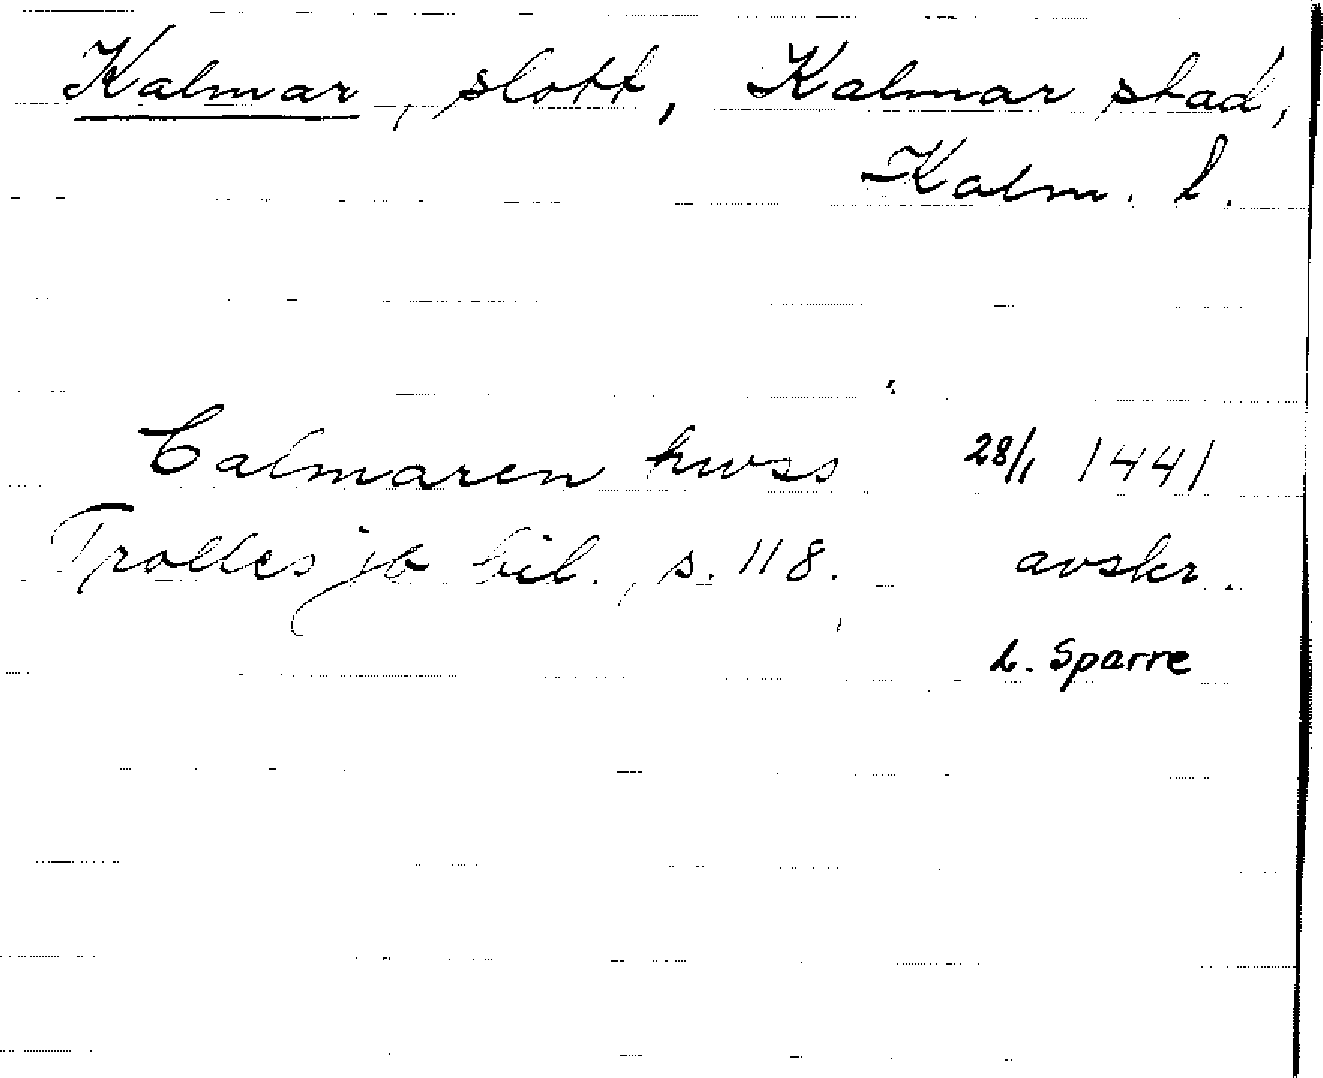 Kalmar, slott, Kalmar stad,
Kalm. l.
Calmaren hwss 28/1 1441
Trolles jb bil., s. 118. avskr.
L. Sparre